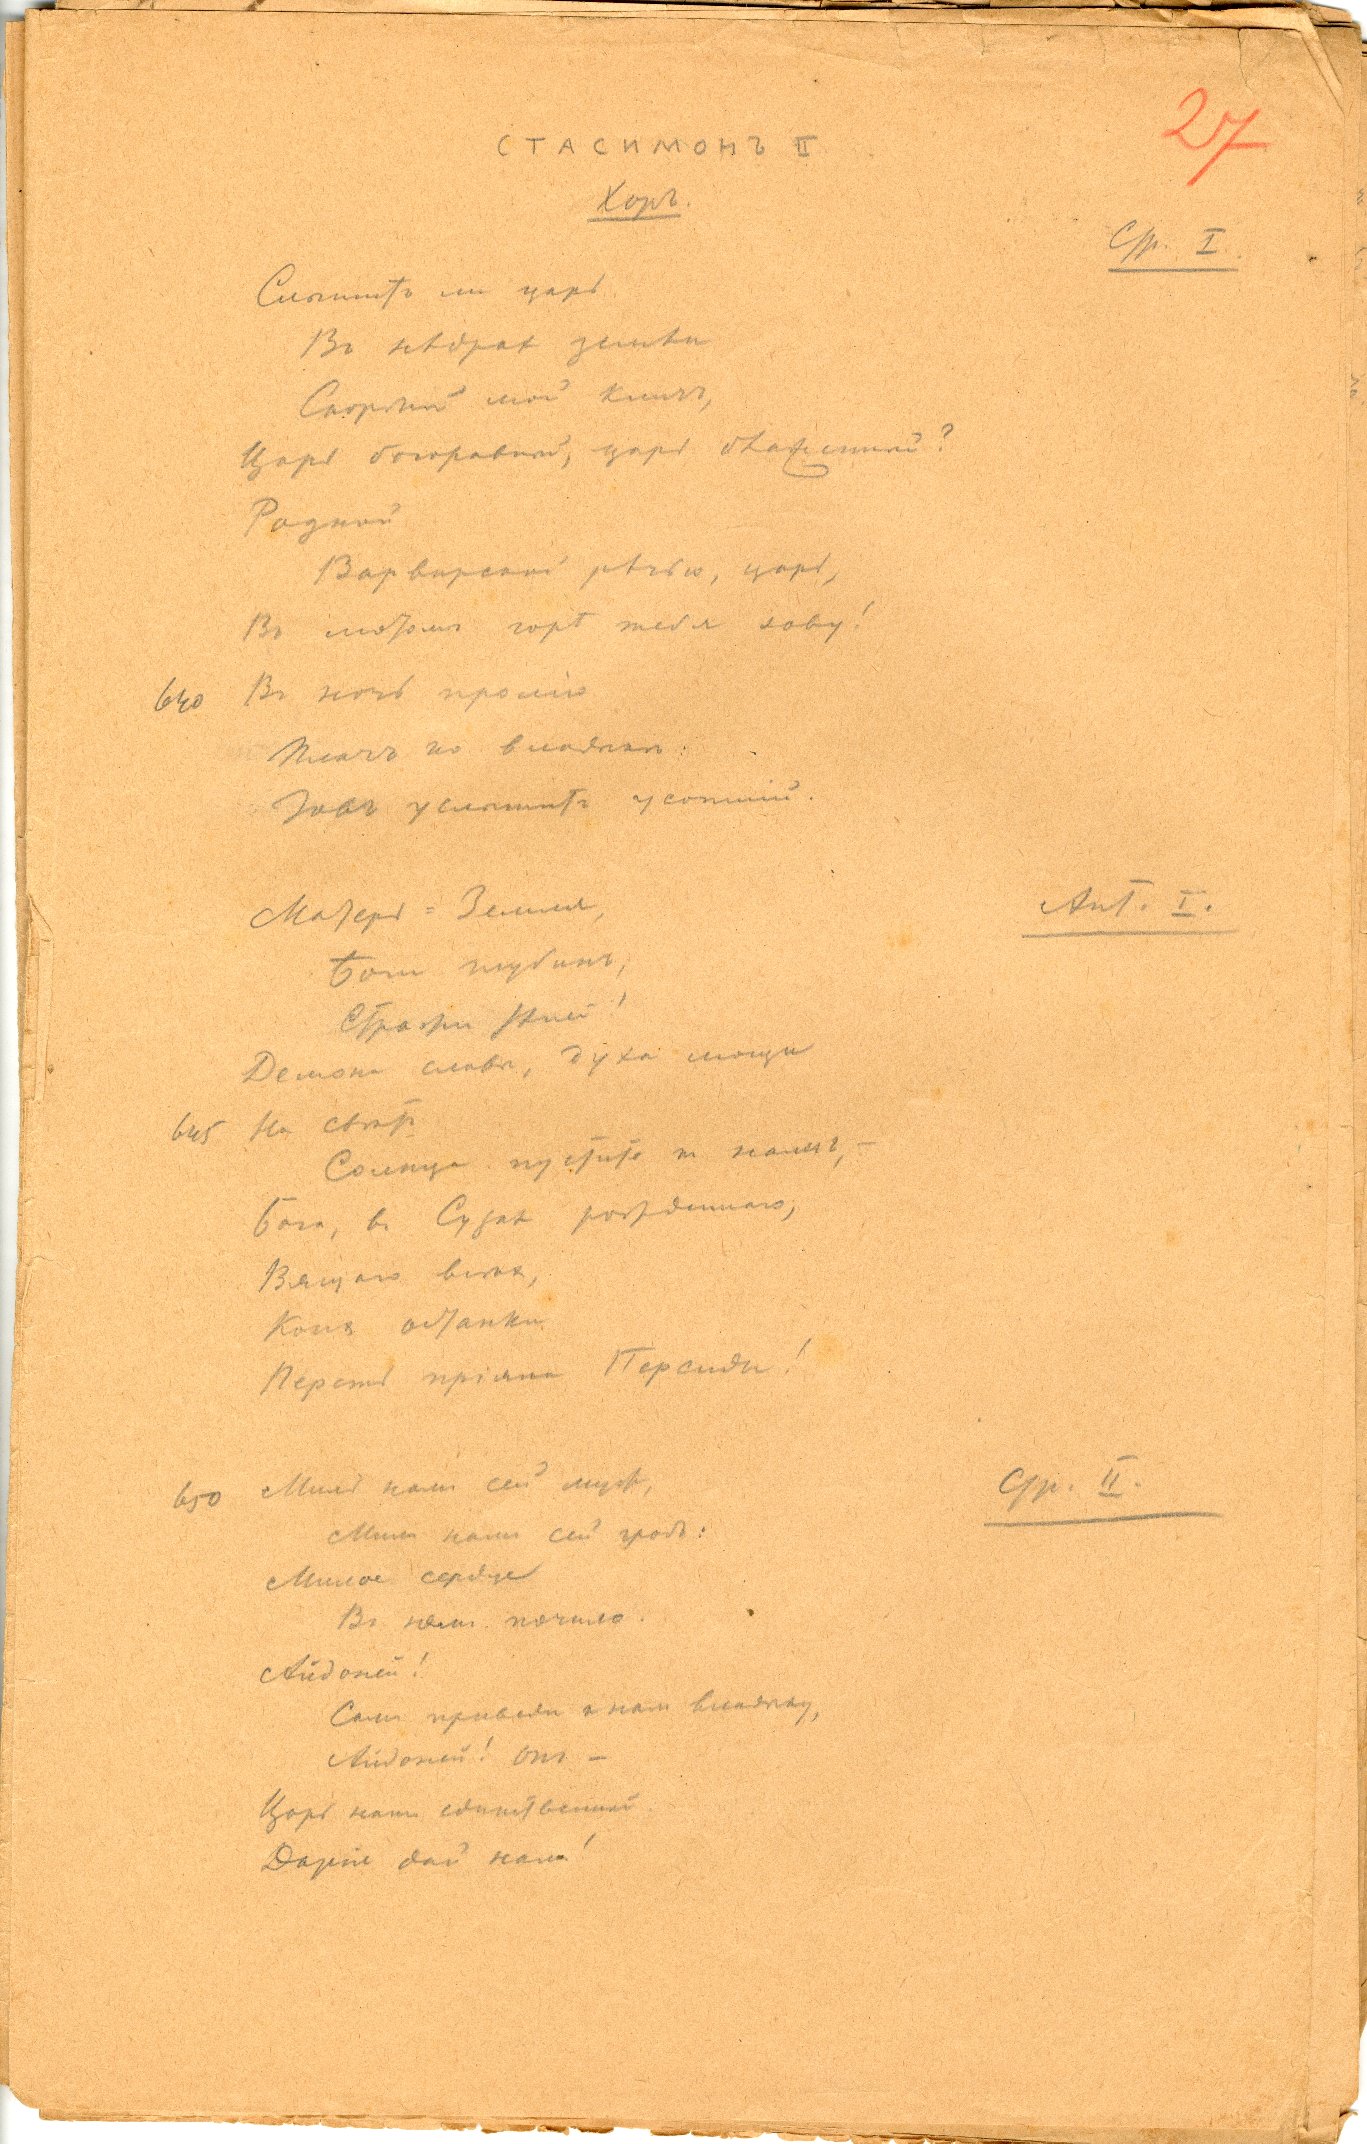 27
СТАСИМОНЪ II
Хоръ.
Стр. I.
Слышитъ ли царь
Въ нѣдрах земли
Скорбный мой кличъ,
Царь богоравный, царь блаженный?
Родной
Варварской рѣчью, царь,
Въ лютомъ горѣ тебя зову!
640 Въ ночь пролію
Плачъ по владыкѣ:
Зовъ услышитъ усопшій.
Ант. I.
Матерь-Земля,
Боги глубинъ,
Стражи тѣней!
Демона славы, духа мощи
645 На свѣтъ
Солнца пустите къ намъ, –
Бога, въ Сузах рожденнаго,
Вящаго всѣхъ,
Коихъ останки
Персть пріяла Персиды!
Стр. II.
650 Милъ нам сей мужъ,
Милъ намъ сей гробъ:
Милое сердце
Въ немъ почило.
Айдоней!
Самъ приведи к нам владыку,
Айдоней! Онъ –
Царь нашъ единственный.
Дарія дай намъ!